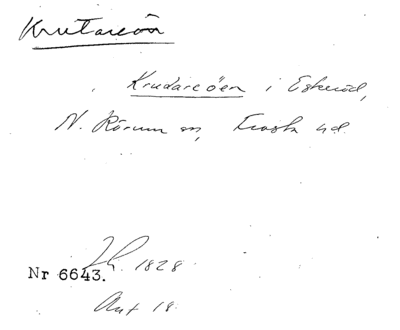 Krutareön
Krudareöen i Eskeröd,
N. Rörum sn, Frosta hd.
Lh. 1828
Nr 6643.
Ant 18